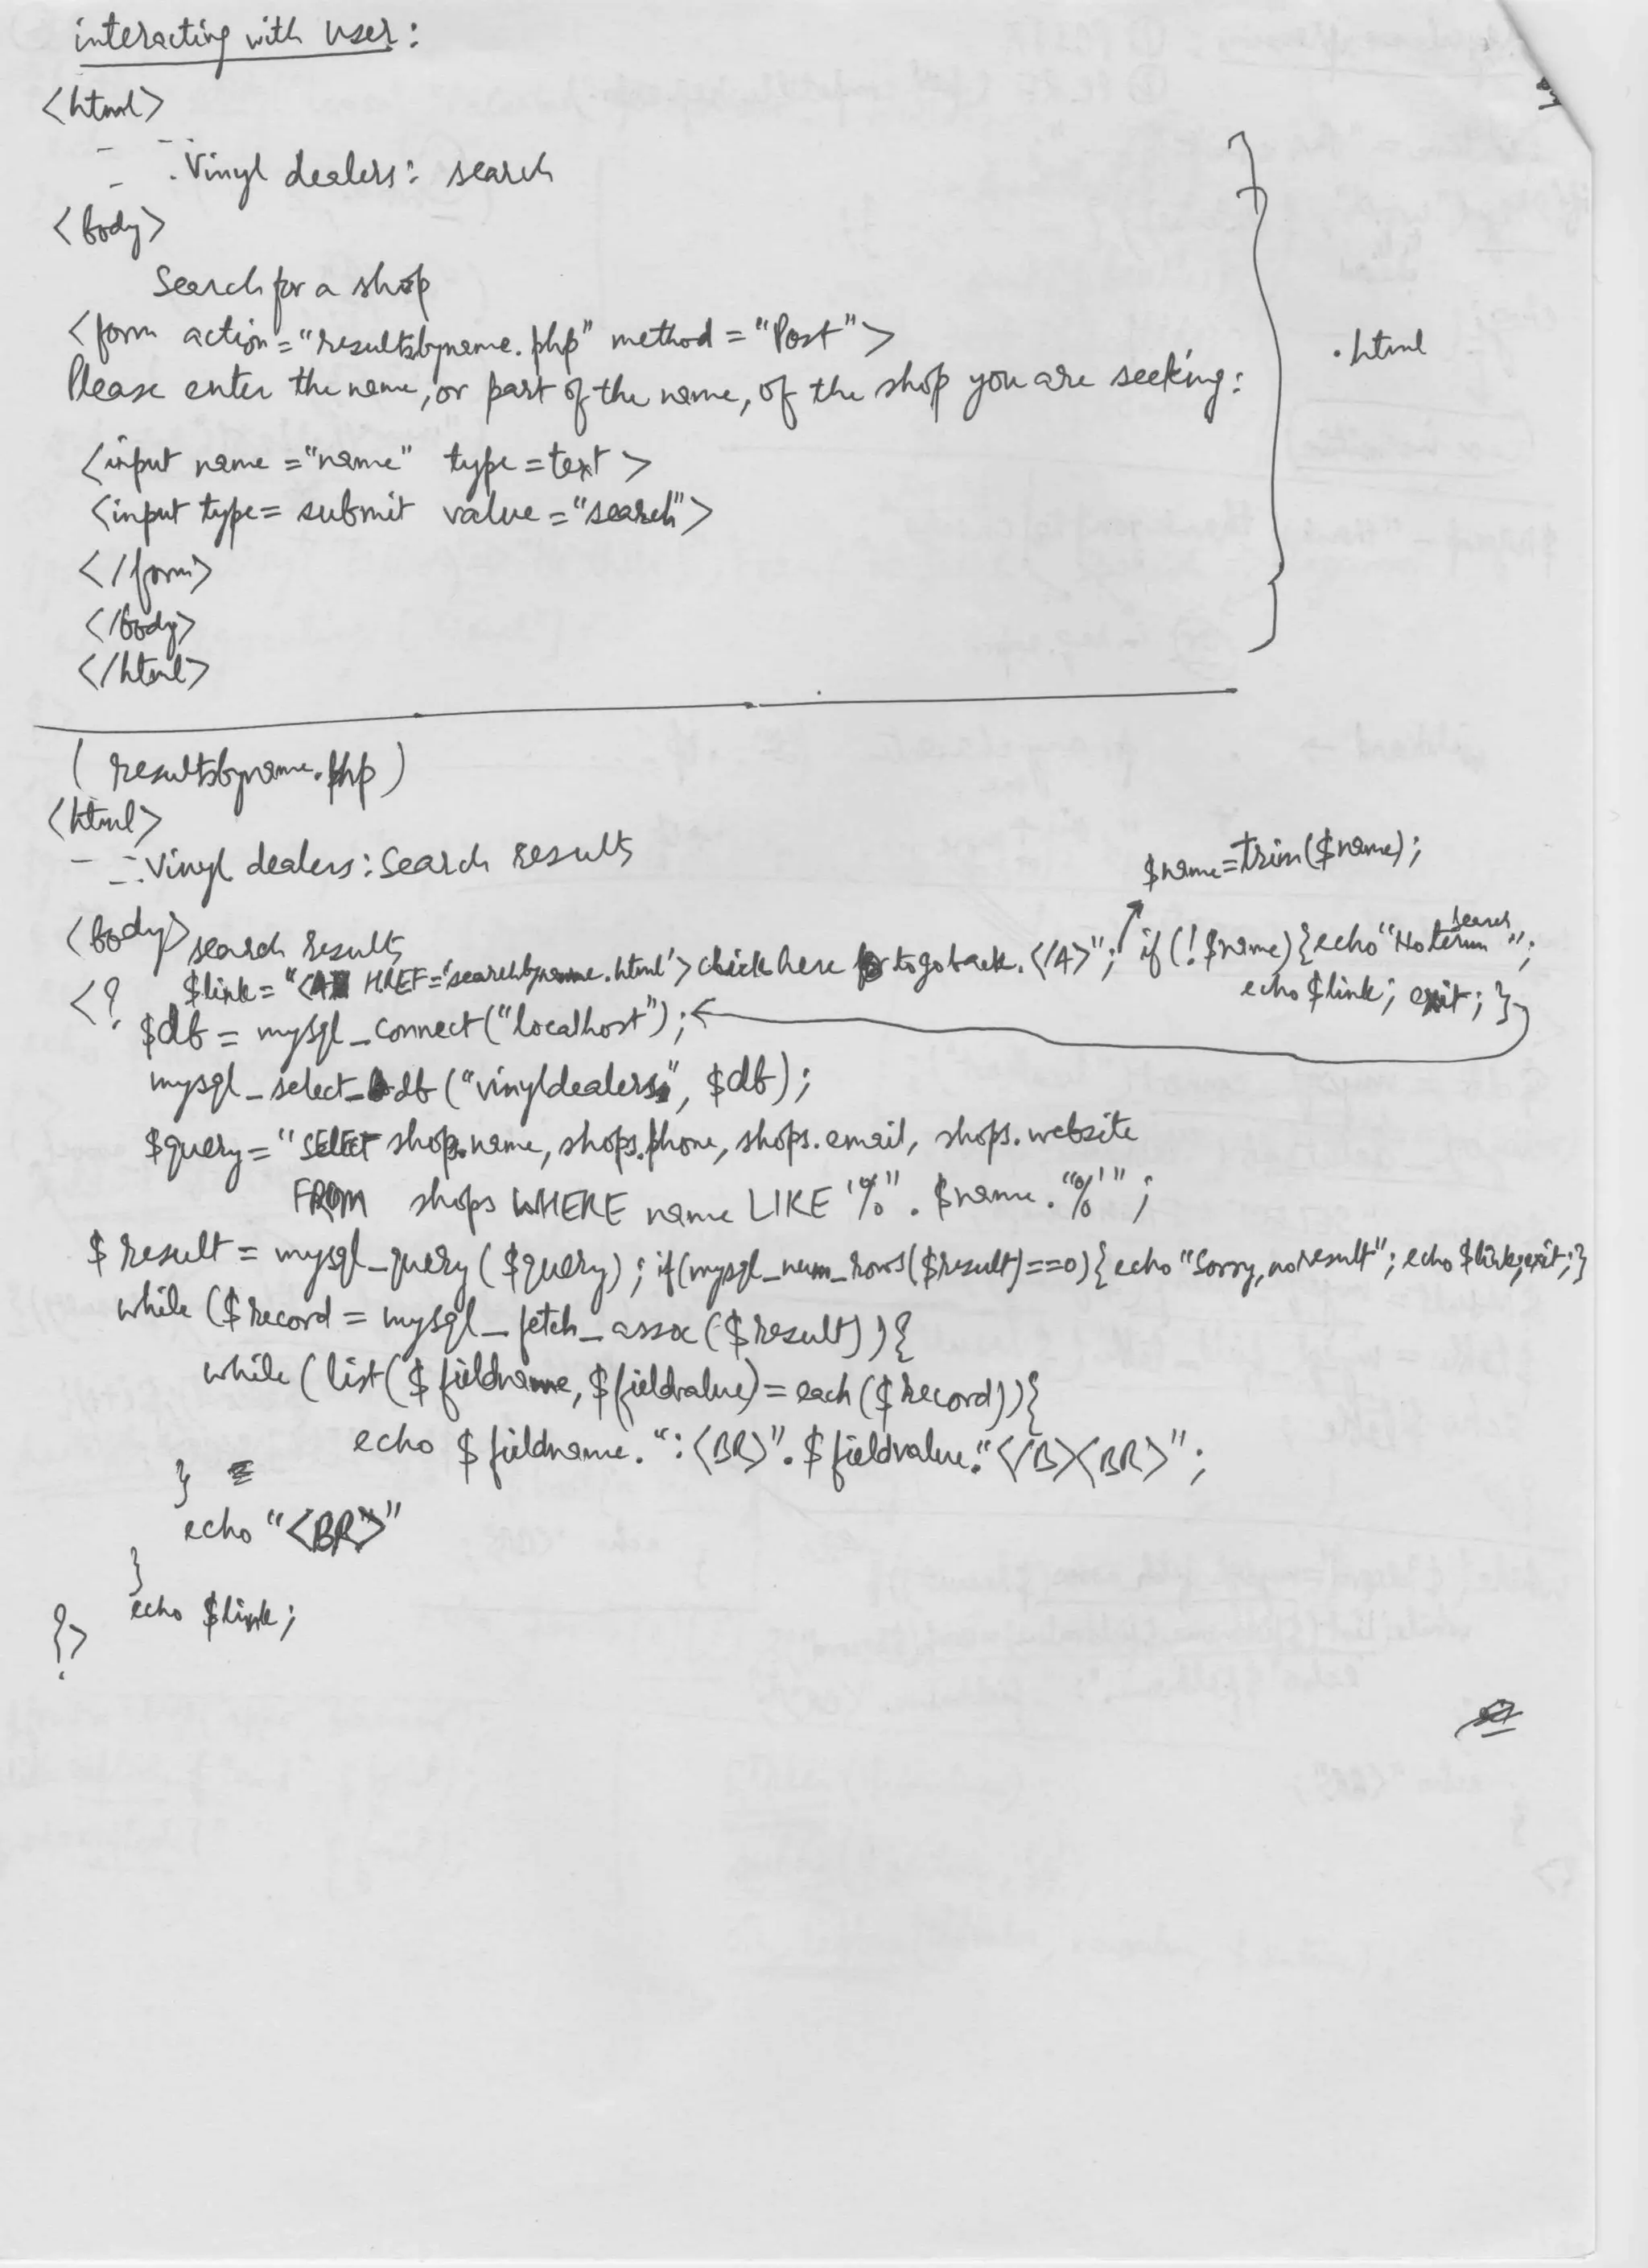 interacting with user:
<html>
- - - . Vinyl dealers: search
<body>
Search for a shop
<form action="resultsbyname.php" method="Post">
Please enter the name, or part of the name, of the shop you are seeking:
.html
<input name="name" type=text>
<input type=submit value="search">
</form>
</body>
</html>
(resultsbyname.php)
<html>
- - - : Vinyl dealers: Search results
$name=trim($name);
<body> search results
<? $link="<A HREF='searchbyname.html'>click here to go back.</A>"; if(!$name){echo"No search term";
echo $link; exit;}
$db = mysql_connect("localhost");
mysql_select_db("vinyldealers", $db);
$query="SELECT shops.name, shops.phone, shops.email, shops.website
FROM shops WHERE name LIKE '%".$name."%'";
$result = mysql_query($query); if(mysql_num_rows($result)==0){echo "Sorry, no result"; echo $link; exit;}
while ($record = mysql_fetch_assoc($result)){
while (list($fieldname, $fieldvalue)=each($record)){
echo $fieldname.":<BR>".$fieldvalue."</B><BR>";
}
echo "<BR>"
}
echo $link;
?>